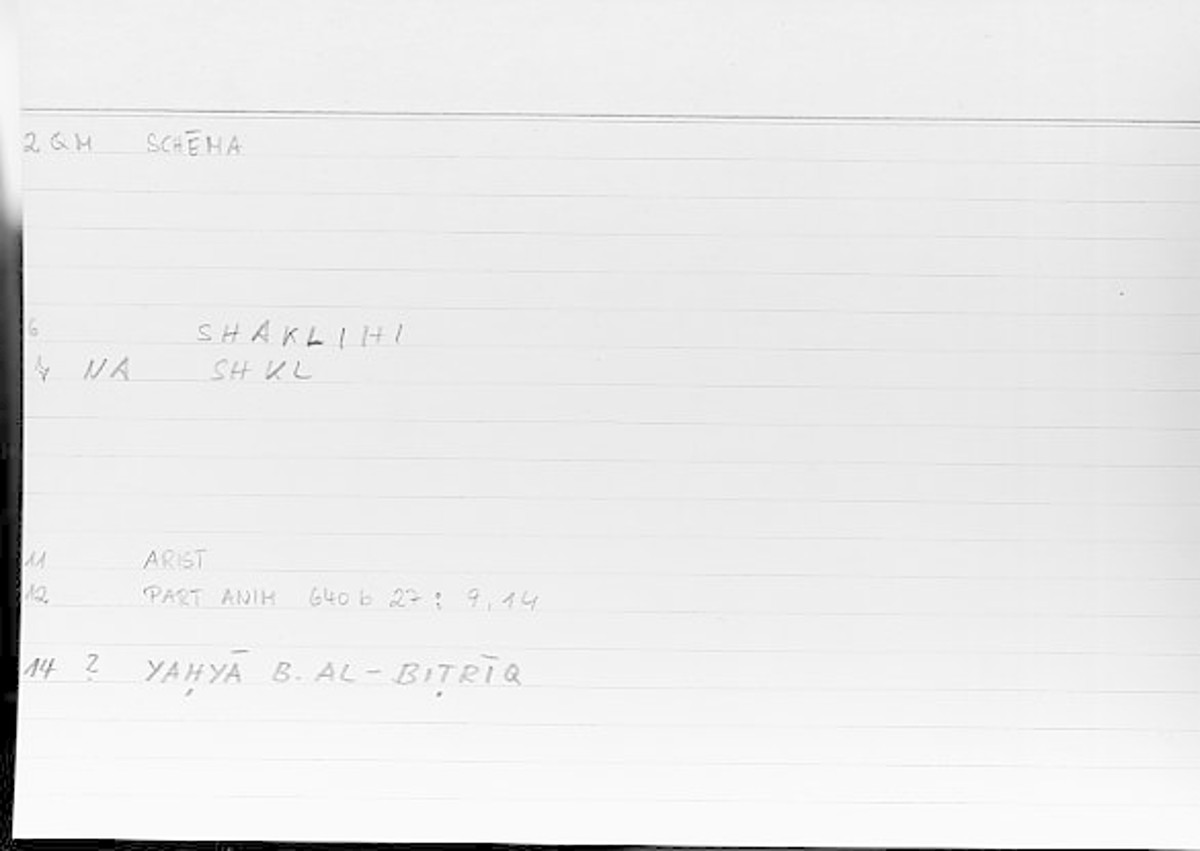 2 QM SCHĒMA
6 SHAKLIHI
7 NA SHKL
11 ARIST
12 PART ANIM 640 b 27 : 9, 14
14 ? YAḤYĀ B. AL-BIṬRĪQ